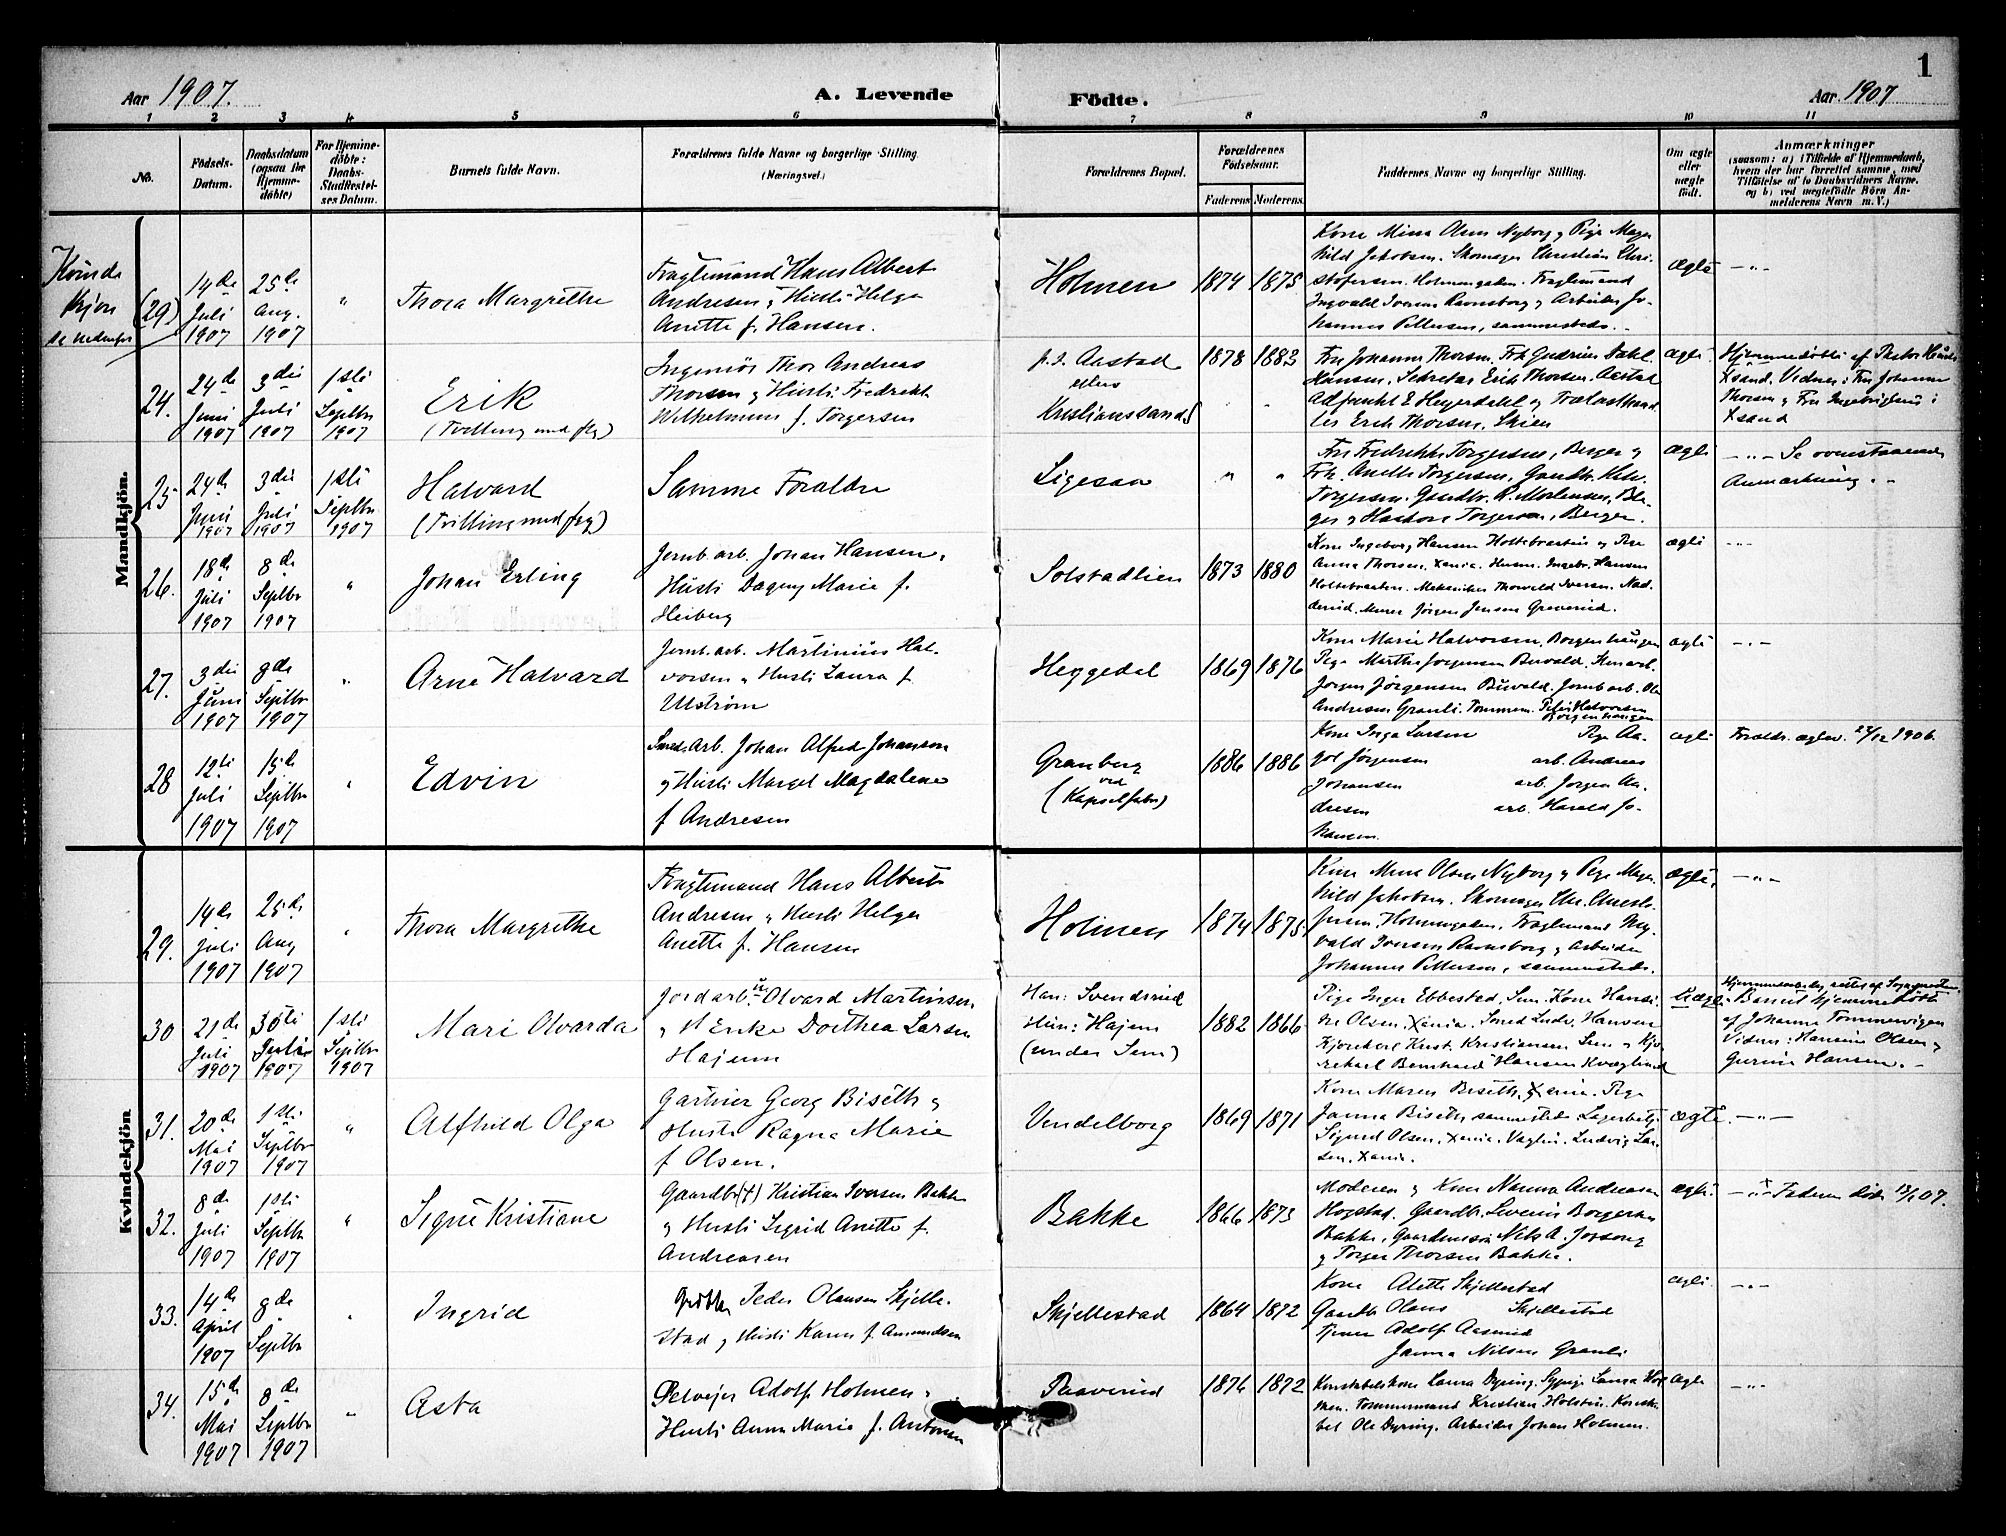 1
Aar 1907.
A. Levende
Födte.
Aar 1907
1 2 3 4 5 6 7 8 9 10 11
No.
Födsels-
Datum.
Daabsdatum
(ogsaa for
Hjemme-
döbte)
For Hjemme-
döbte:
Daabs-
Stadfæstel-
ses Datum.
Barnets fulde Navn.
Forældrenes fulde Navne og borgerlige Stilling.
(Næringsvei.)
Forældrenes Bopæl.
Forældrenes
Födselsaar.
Faderens
Moderens
Faddernes Navne og borgerlige Stilling.
Om ægte
eller
uægte
födt.
Anmærkninger
(saasom: a) i Tilfælde af Hjemmedaab,
hvem der har forrettet samme, med
Tilföielse af to Daabsvidners Navne.
og b) ved uægtefödte Börn An-
melderens Navn m. V.)
Kvinde
kjøn
se nedenfor
(29)
14de
Juli
1907
25de
Aug.
1907
"
Thora Margrethe
Fragtemand Hans Albert
Andresen & Hustr. Helga
Anette f. Hansen.
Holmen
1874
1875
Kone Mina Olsen Nyborg, Pige Mag-
hild Jakobsen. Skomager Christian Chri-
stofersen. Holmengaden. Fragtemand
Ingvald Iversen Ravnsborg, Arbeider Jo-
hannes Pettersen, sammesteds.
ægte
-"-
Mandkjön.
24.
24de
Juni
1907
3die
Juli
1907
1ste
Septbr
1907
Erik
(Tvilling med flg)
Ingeniør Thor Andreas
Thorsen & Hustr. Fredrikke
Wilhelmine f. Törgersen
p.t. Aastad
ellers
Kristianssand S
1878
1883
Fru Johanne Thorsen. Frk Gudrun Dahl.
Hansen. Sekretær Erik Thorsen. Aastad
Adjunkt E Heyerdahl og Trælasthand
ler Erik Thorsen, Skien
ægte
Hjemmedöbte af Pastor
Xsand. Vidner: Fru Johanne
Thorsen & Fru Ingebrigtsen i
Xsand
25
24de
Juni
1907
3die
Juli
1907
1ste
Septbr
1907
Halvard
(Tvilling med frg)
Samme Forældre
Ligesaa
"
"
Fru Fredrikke Torgersen, Berger &
Frk. Anette Torgersen, Gaardbr. Hele
Torgersen. Gaardbr. R. Mortensen, Ber-
ger & Haakon Torgersen, Berger.
ægte
-"- Se ovenstaaende
Anmærkning
26.
18de
Juli
1907
8de
Septbr
1907
"
Johan Erling
Jernb.arb. Johan Hansen,
Hustr. Dagny Marie f.
Heiberg
Solstadlien
1873
1880
Kone Ingeborg Hansen Holtebraaten & Pige
Anna Thorsen, Xania. Husm. Ingebr. Hansen
Holtebraaten. Mekaniker Thorvald Iversen, Nad-
derud. Murer Jörgen Jensen Greverud.
ægte
-"-
27.
3die
Juni
1907
8de
Septbr
1907
"
Arne Halvard
Jernb.arb. Martinius Hal-
vorsen & Hustr. Laura f.
Ulström
Heggedal
1869
1876
Kone Marie Halvorsen, Borgenhaugen
Pige Marthe Jorgensen Buvald. Stenarb.
Jorgen Jörgensen Buvald. Jernb.arb. Ole
Andresen Granli. Tommem. Peter Halvorsen
Borgenhaugen
ægte
-"-
28
12te
Juli
1907
15de
Septbr
1907
"
Edvin
Smed.Arb. Johan Alfred Johanson
& Hustr. Margit Magdalene
f Andresen
Granberg
ved
(Kapselfabr)
1886
1886
Kone Inga Larsen Pige Aa-
got Jörgensen arb. Andreas
Johansen arb. Jorgen An-
dresen arb. Harald Jo-
hansen.
ægte
Foraldr. ægtev. 26/12 1906
Kvindekjön
29.
14de
Juli
1907
25de
Aug
1907
"
Thora Margrethe
Fragtemand Hans Albert
Andresen & Hustr. Helga
Anette f. Hansen
Holmen
1874
1875.
Kone Mina Olsen Nyborg & Pige Mag-
hild Jakobsen. Skomager
Holmengaden. Fragtemand Ing-
vald Iversen Ravnsborg & Arbeider
Johannes Pettersen, sammesteds.
ægte.
-"-
30
21de
Juli
1907
30te
Juli
1907
1ste
Septbr
1907
Mari Olvarda
Jordarb. Olvard Martinsen
& Enke Dorthea Larsen
Hajem
Han: Svendsrud
Hun: Hajem
(under Sem)
1882
1866
Pige Inga Ebbestad, Sem. Kone Hansi-
ne Olsen, Xania. Smed Ludv. Hansen
Kjorekarl Krist. Kristiansen Sem & Kjö-
rekarl Bernhard Hansen
Uægte
Barnet hjemmedöbt
af Johanne Tommervigen
Vidner: Hansine Olsen &
Gurine Hansen.
31.
20de
Mai
1907
1ste
Septbr
1907
"
Alfhild Olga
Gartner Georg Biseth &
Hustr. Ragna Marie
f Olsen.
Vendelborg
1869
1871
Kone Maren Biseth, Xania. Pige
Janna Biseth, sammesteds Lagerbetj.
Sigurd Olsen. Xania. Vagtm. Ludvig Lar-
sen. Xania.
ægte.
-"-
32.
8de
Juli
1907
1ste
Septbr
1907
"
Signe Kristiane
Gaardbr(†) Kristian Iversen Bakke
& Hustr. Sigrid Anette f.
Andreasen
Bakke
1866
1873
Moderen & Kone Nanna Andreasen
Hogstad. Gaardbr. Severin Borgersen
Bakke, Gaardmson Nils A. Jossong
& Torger Thorsen Bakke.
ægte
-"- Faderen död 13/1 07.
33.
14de
April
1907
8de
Septbr
"
Ingrid
Grdbr. Peder Olausen Skjelle-
stad & Hustr. Karen f. Amundsen
Skjellestad
1864
1872
Kone Alette Skjellestad
Gaardbr. Olaus Skjellestad
Tjener Adolf Aaserud
Janna Nilsen Granli
ægte.
-"-
34.
15de
Mai
1907
8de
Septbr
1907
"
Asta
Adolf Holmen &
Hustr. Anna Marie f. Antonsen
Paaverud
1876
1872
Konstabelkone Laura Dyring. Sypige Laura Hol-
men. Tommermand Kristian Holstein. Konsta-
bel Ole Dyring. Arbeider Johan Holmen.
ægte
-"-